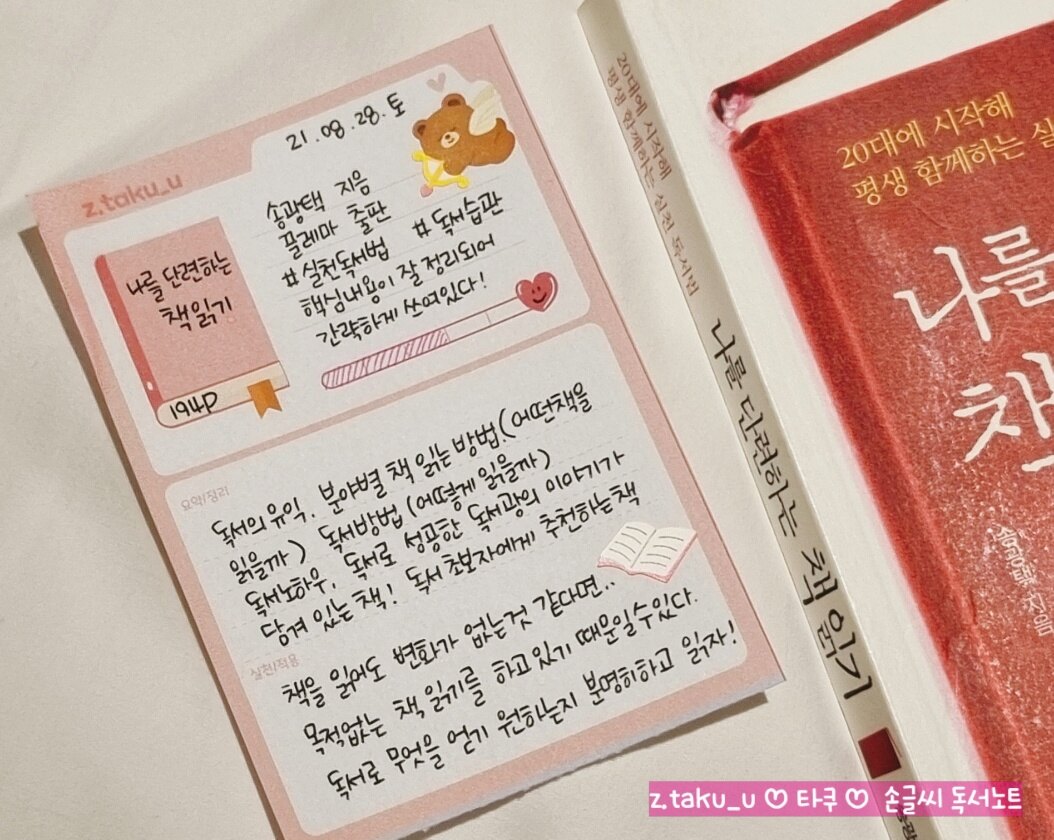 21.08.28.토
z.taku_u
나를 단련하는
책 읽기
194p
송광택 지음
끌레마 출판
#실천독서법 #독서습관
핵심내용이 잘 정리되어
간략하게 쓰여있다!
요약/정리
독서의 유익, 분야별 책 읽는 방법.(어떤책을
읽을까) 독서방법(어떻게 읽을까)
독서노하우, 독서로 성공한 독서광의 이야기가
담겨 있는 책! 독서 초보자에게 추천하는 책
실천/적용
책을 읽어도 변화가 없는것 같다면..
목적없는 책 읽기를 하고 있기 때문일 수 있다.
독서로 무엇을 얻기 원하는지 분명히하고 읽자!
20대에 시작해
평생 함께하는 실천 독서법
나를 단련하는 책 읽기
20대에 시작해
평생 함께하는 실
나를
책
송광택 지음
z.taku_u ♡ 타쿠 ♡ 손글씨 독서노트